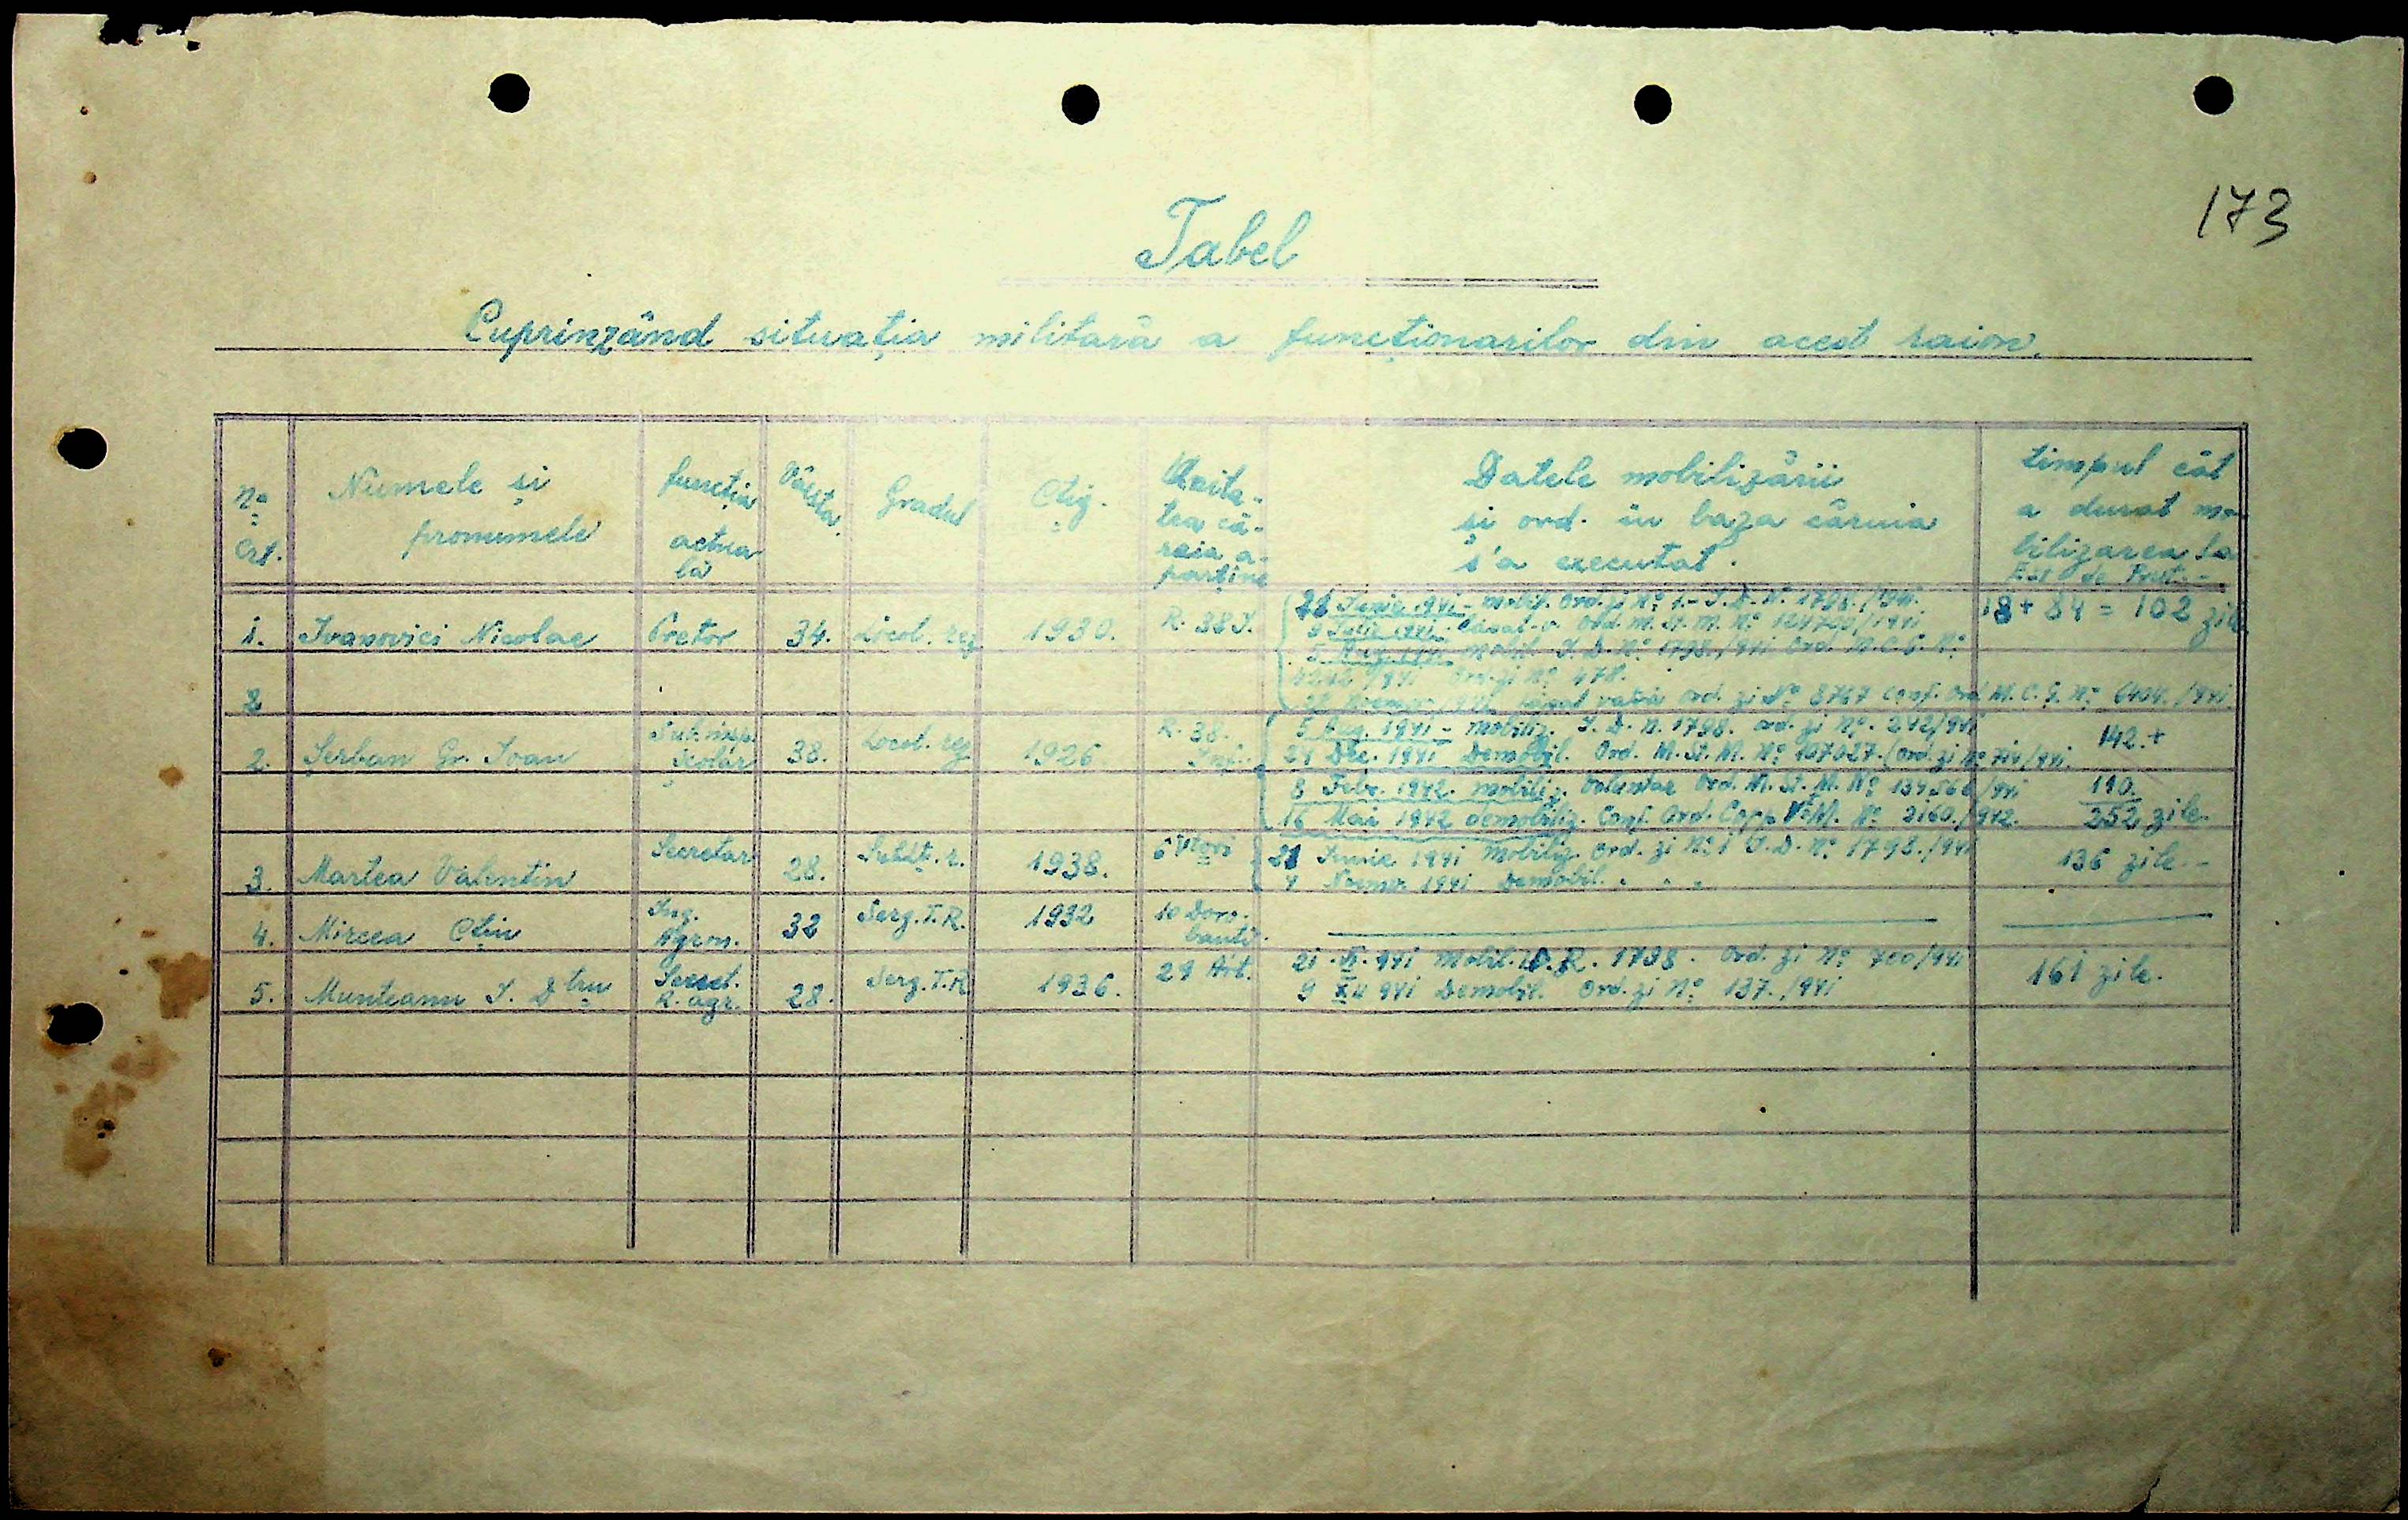 173
Tabel
Cuprinzând situația militară a funcționarilor din acest raion.
No Crt.
Numele și pronumele
funcția actuală
Vârsta
Gradul
Ctig.
Unitatea căreia aparține
Datele mobilizării și ord. în baza căruia s'a executat.
timpul cât a durat mobilizarea
1. Ivanovici Nicolae Pretor 34. Locot. rez 1930. R. 38 I.
Iunie 1941 - mobil. Ord. zi No 1.- I.D. No 1798./941. 18 + 84 = 102 zile
9 Iulie 1941 Lăsat v. Ord. M. St. M. No
5 Aug. 1941 Mobil. I. D. No 1798./941 Ord. M.C.G. No
/941 Ord. zi No 478.
lăsat vatră ord. zi No 8767 conf. Ord. M. C. G. No 6404./941.
2
2. Șerban Gr. Ioan Sub. insp. Școlar 38. Locot. rez 1926 R. 38. Inf.
5 Aug. 1941 - mobiliz. I. D. N. 1798. ord. zi No. 242/941 142.+
24 Dec. 1941 Demobil. Ord. M. St. M. No 207027./Ord. zi No 710/941.
8 Febr. 1942. mobiliz. Voluntar Ord. M. St. M. No /941 110.
16 Mai 1942 demobiliz. Conf. Ord. No 2160./942. 252 zile.
3. Martea Valentin Secretar 28. Sublt. r. 1938. 6 Vtori
21 Iunie 1941 Mobiliz. Ord. zi No 1 I. D. No 1798./941 136 zile.-
4 Noemv. 1941 Demobil. . . .
4. Mircea Ctin Ing. Agron. 32 Serg. T.R. 1932 10 Dorobanți.
5. Munteanu I. Dtru Secret. R. agr. 28. Serg. T.R. 1936. 29 Art.
21. VI. 941 Mobil. I.D.R. 1798. Ord. zi No 700/941 161 zile.
9 941 Demobil. Ord. zi No 137./941